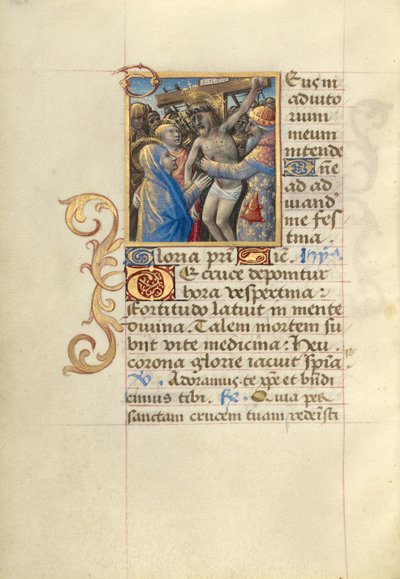 Eus in
adiuto
rium
meum
intende
Dñe
ad ad
iuuand
me fes
tina
Gloria pri Sic. hỹ9
De cruce deponitur
hora vespertina:
Fortitudo latuit in mente
diuina. Talem mortem su
biit vite medicina: Heu
corona glorie iacuit supīa
v. Adoramus te xp̄e et bn̄di
cimus tibi. R̸ Quia per
sanctam crucem tuam redemīsti